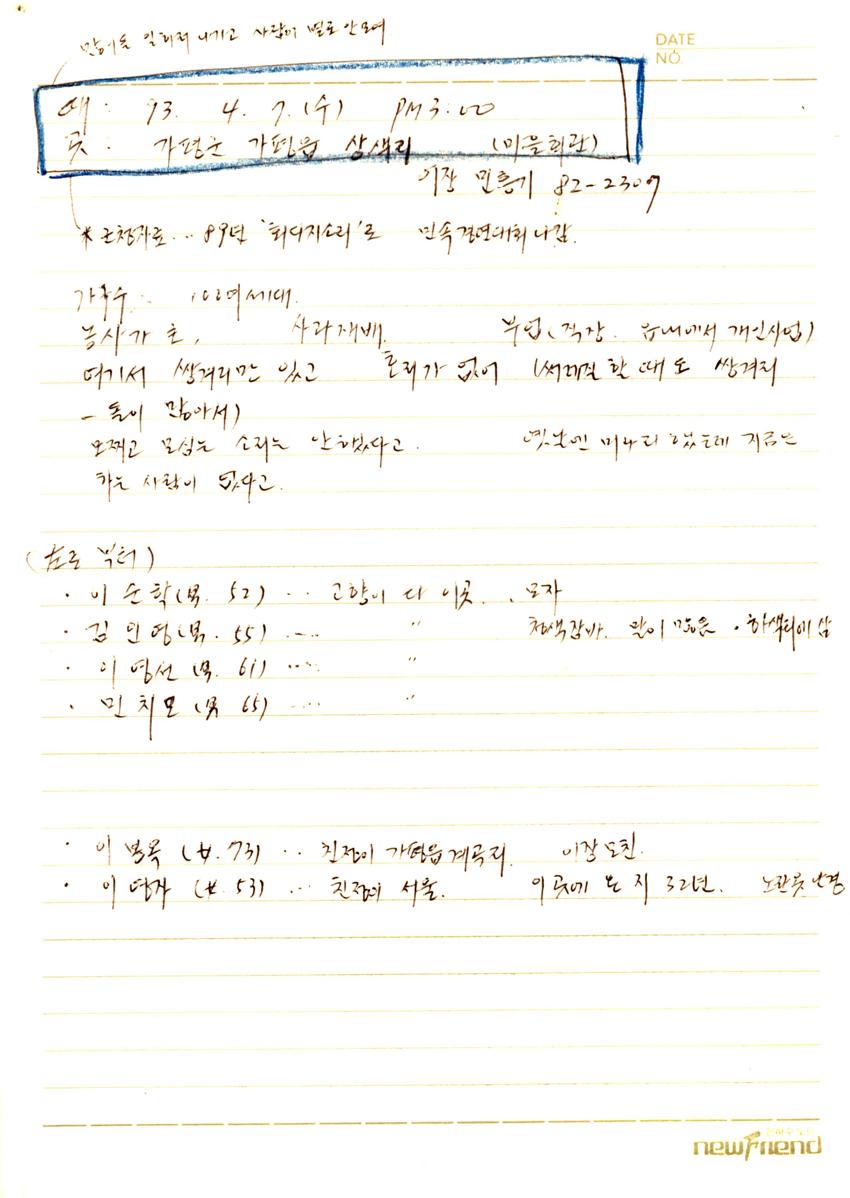 사람이 별로 안모여
DATE
NO.
때 : 93. 4. 7. (수) PM 3:00
곳 : 가평군 가평읍 상색리 (마을회관)
이장 민흥기 82-2307
* 군청자료... 89년 '회다지소리'로 민속경연대회 나감.
가구수 : 100여세대.
농사가 초, 사과재배. 부업(직장. 읍내에서 개인사업)
여기서 쌍겨리만 있고 호리가 없어 (써레질 할 때도 쌍겨리
- 돌이 많아서)
모찌고 모심는 소리는 안했다고. 옛날엔 미나리 했는데 지금은
하는 사람이 없다고.
(左로 부터)
· 이순학(男. 52) ... 고향이 다 이곳. . 모자
· 김인영(男. 55) .... " 청색잠바. 말이 많음 .
· 이영선(男. 61) .... "
· 민치모(男. 65) .... "
· 이복욱 (女. 73) .. 친정이 가평읍 계곡리. 이장 모친.
· 이영자 (女. 53) ... 친정이 서울. 이곳에 온 지 32년.
newFriend